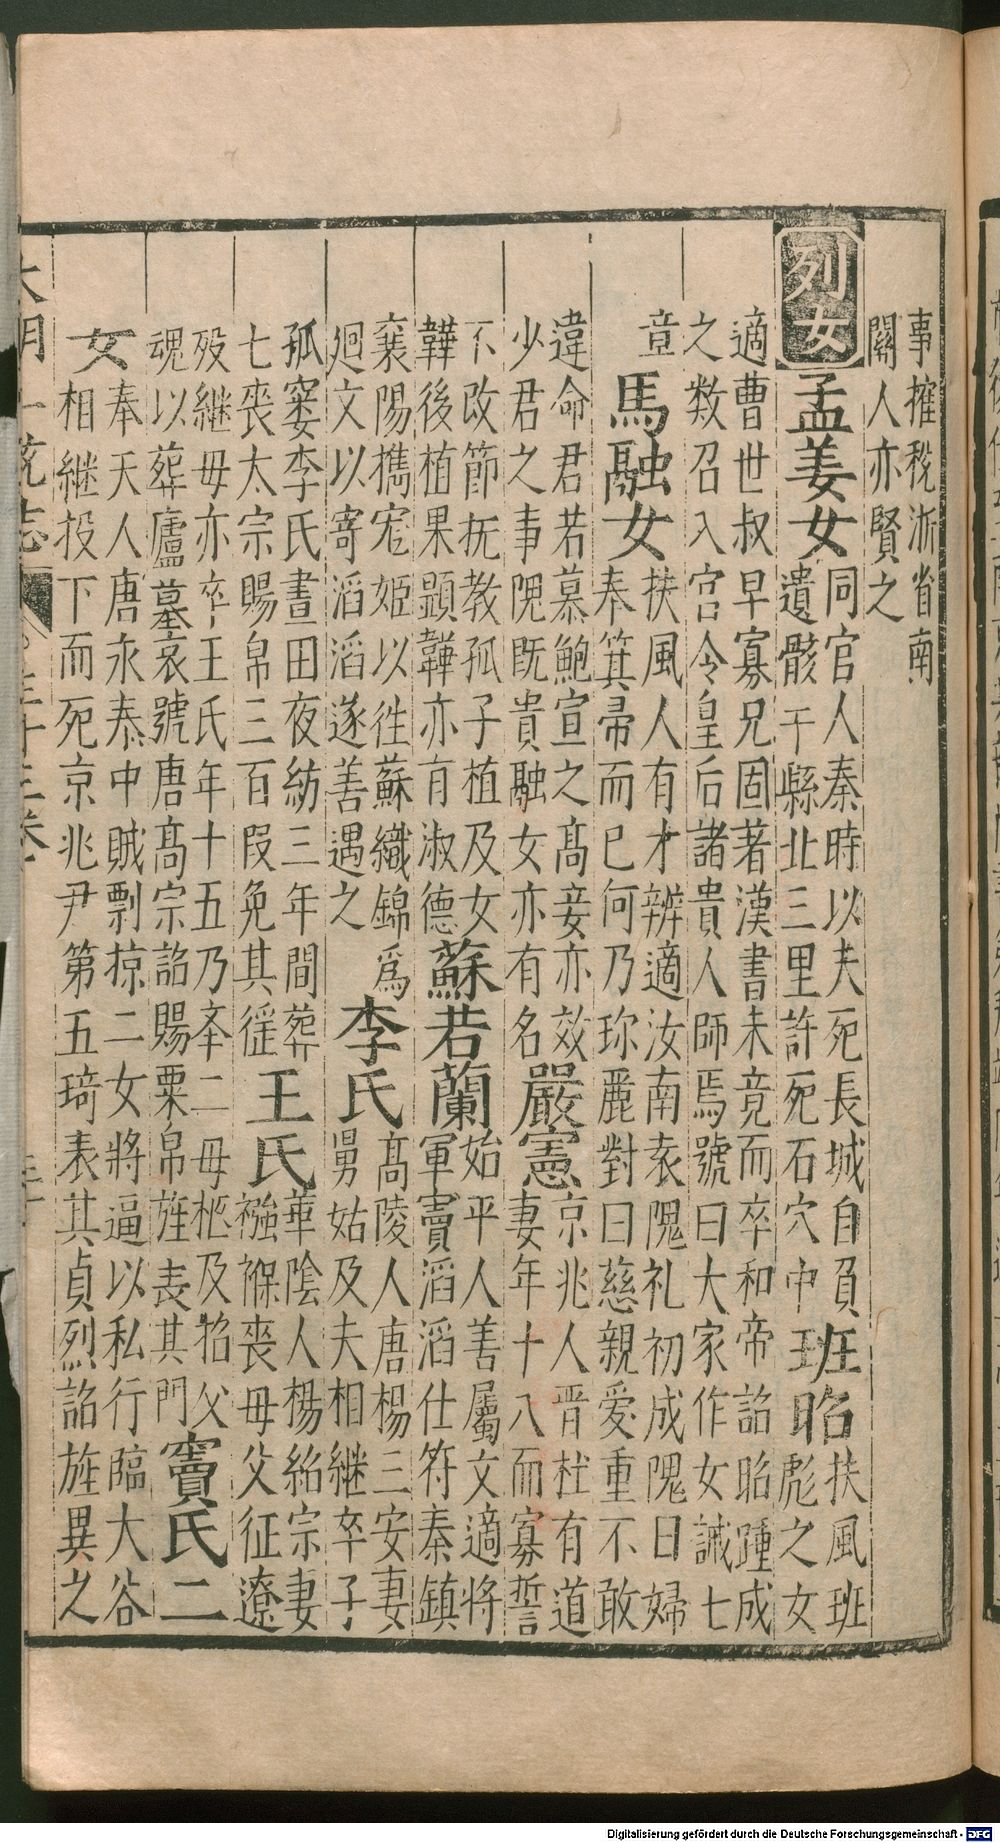 事搉稅浙省南
關人亦賢之
列女
孟姜女
同官人秦時以夫死長城自負
遺骸干縣北三里許死石穴中
班昭
扶風班
彪之女
適曹世叔早寡兄固著漢書未竟而卒和帝詔昭踵成
之數召入宮令皇后諸貴人師焉號曰大家作女誡七
章
馬融女
扶風人有才辨適汝南袁隗礼初成隗曰婦
奉箕帚而已何乃珎麗對曰慈親愛重不敢
違命君若慕鮑宣之髙妾亦效
少君之事隗既貴融女亦有名
嚴憲
京兆人晋杜有道
妻年十八而寡誓
不改節抚教孤子植及女
韡後植果顕韡亦有淑德
蘇若蘭
始平人善屬文適將
軍竇滔滔仕符秦鎮
襄陽攜寵姬以徃蘇織錦爲
廻文以寄滔滔遂善遇之
李氏
髙陵人唐楊三安妻
舅姑及夫相継卒子
孤窭李氏晝田夜紡三年間葬
七喪太宗賜帛三百段免其徭
王氏
華陰人楊紹宗妻
襁褓喪母父征遼
殁継母亦卒王氏年十五乃奉二母柩及招父
魂以葬廬墓哀號唐髙宗詔賜粟帛旌表其門
竇氏二
女
奉天人唐永泰中賊剽掠二女將逼以私行臨大谷
相継投下而死京兆尹第五琦表其貞烈詔旌異之
大明一統志
三十三卷
Digitalisierung gefördert durch die Deutsche Forschungsgemeinschaft - DFG